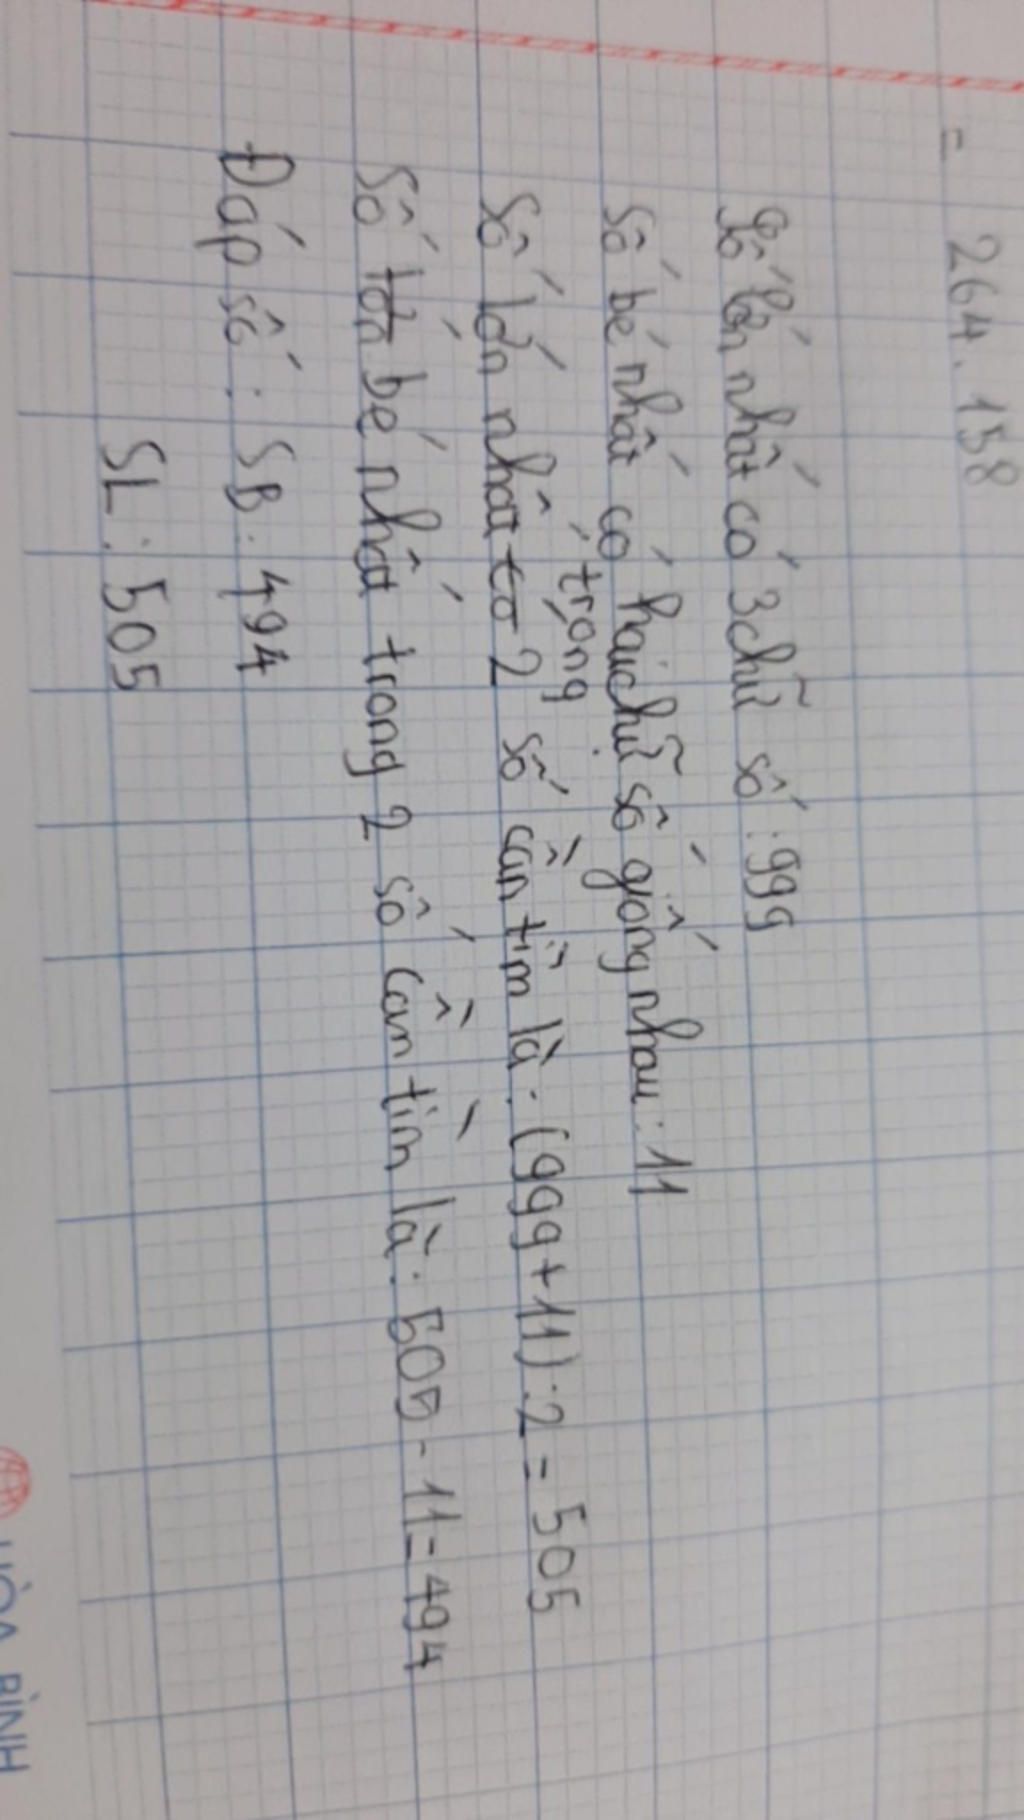 = 264.158
Số lớn nhất có 3 chữ số : 999
Số bé nhất có hai chữ số giống nhau : 11
trong
Số lớn nhất có 2 số cần tìm là : (999 + 11) : 2 = 505
Số lớn bé nhất trong 2 số cần tìm là : 505 - 11 = 494
Đáp số : SB : 494
SL : 505
HÒA BÌNH